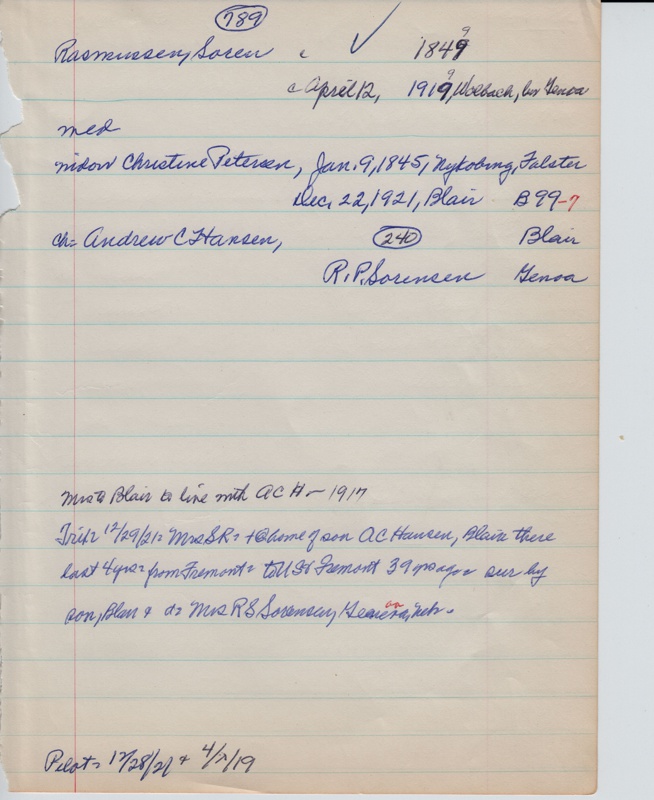 789
Rasmussen, Soren c ✓ 1849 9
c April 12, 1919 9, Wolbach, bur Genoa
med
widow Christine Petersen, Jan. 9, 1845, Nykobing, Falster
Dec. 22, 1921, Blair B99-7
ch= Andrew C Hansen, 240 Blair
R.P. Sorensen Genoa
Mrs to Blair to live with ACH - 1917
Trib= 12/29/21= Mrs SR= + @ home of son AC Hansen, Blair there
last 4 yrs= from Fremont= to US & Fremont 39 yrs ago sur by
son, Blair & d= Mrs R S Sorensen, Genoa, Neb.
Pilot= 12/28/21 + 4/2/19